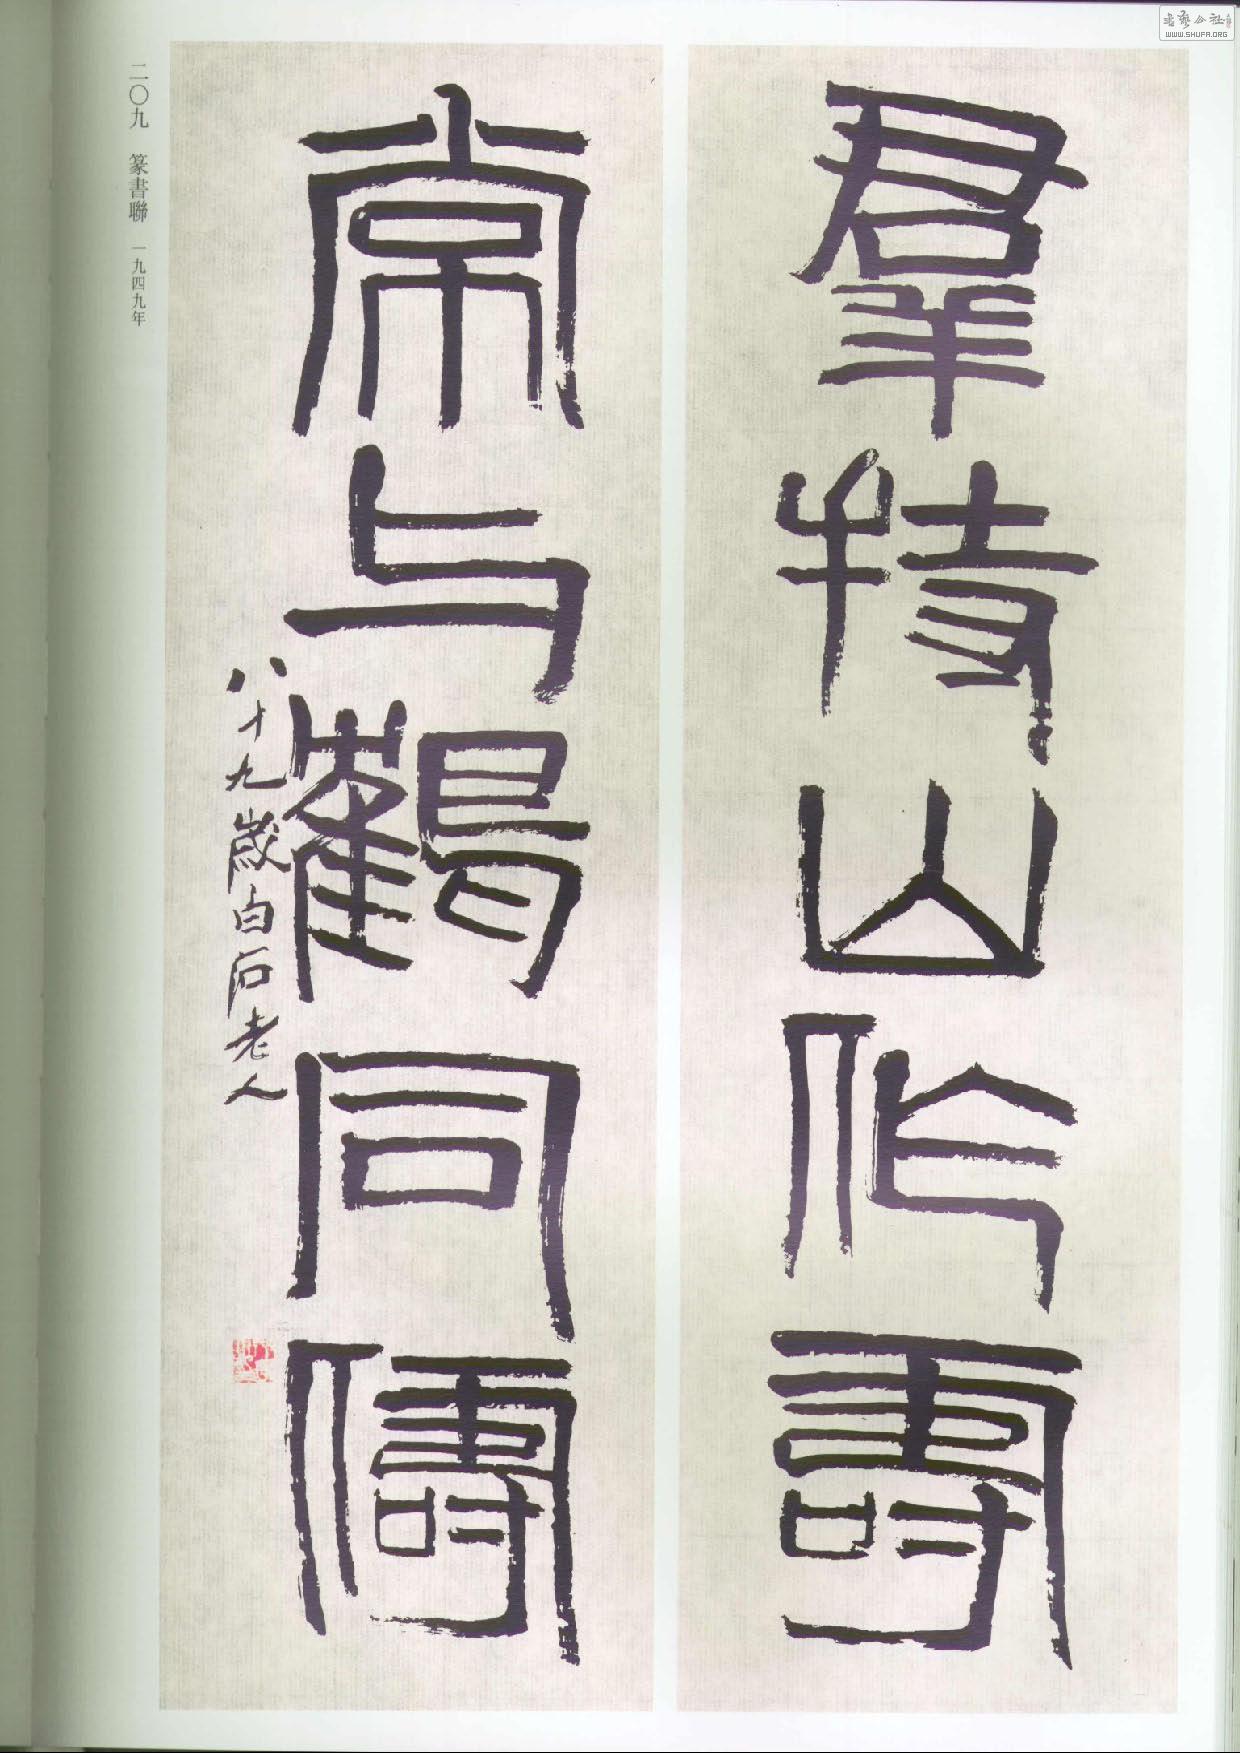 羣持山作壽
常与鶴同儔
八十九歲白石老人
二〇九 篆書聯 一九四九年
書藝公社
WWW.SHUFA.ORG